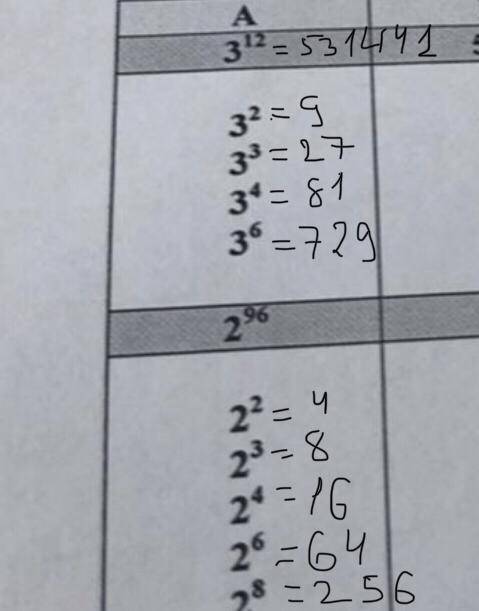 A
3¹² = 531441
3² = 9
3³ = 27
3⁴ = 81
3⁶ = 729
2⁹⁶
2² = 4
2³ = 8
2⁴ = 16
2⁶ = 64
2⁸ = 256